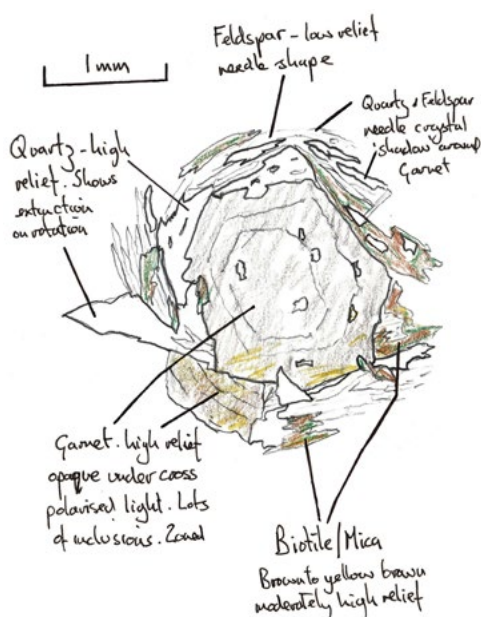 Feldspar - low relief
needle shape
1mm
Quartz & Feldspar
needle crystal
shadow around
Garnet
Quartz - high
relief. Shows
extinction
on rotation
Garnet. high relief
opaque under cross
polarised light. Lots
of inclusions. Zoned
Biotite/Mica
Brown to yellow brown
moderately high relief